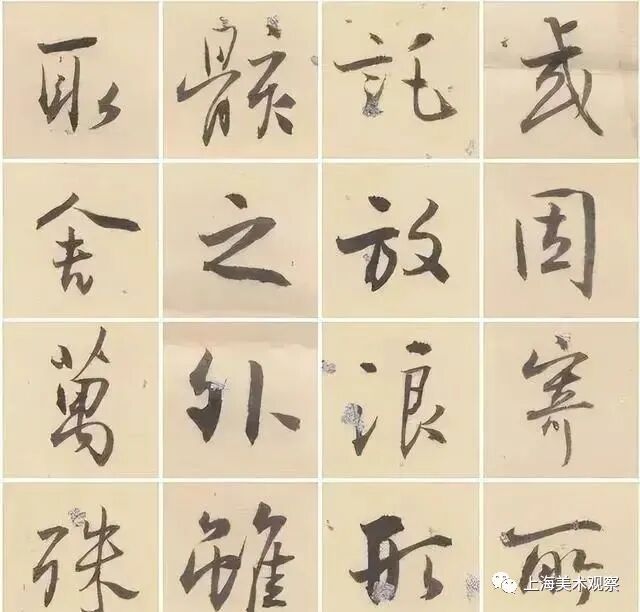 或因寄所
託放浪形
骸之外雖
取舍萬殊
上海美术观察